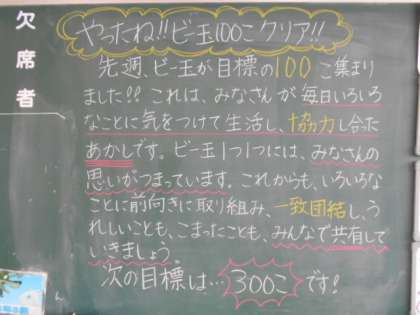 欠席者
やったね!!ビー玉100こクリア!!
先週、ビー玉が目標の100こ集まり
ました!!これは、みなさんが毎日いろいろ
なことに気をつけて生活し、協力し合った
あかしです。ビー玉1つ1つには、みなさんの
思いがつまっています。これからも、いろいろな
ことに前向きに取り組み、一致団結し、う
れしいことも、こまったことも、みんなで共有して
いきましょう。
次の目標は…300こです!